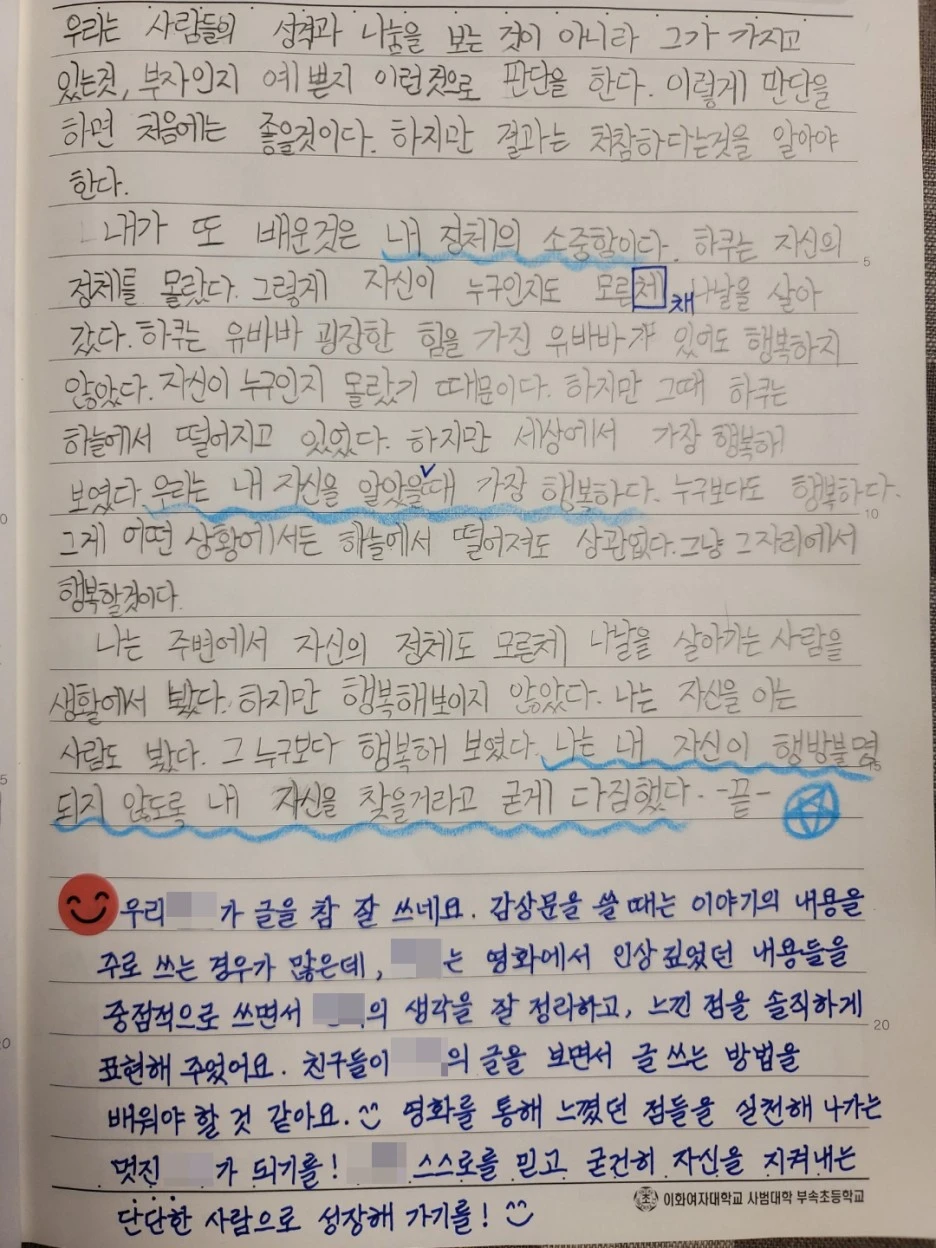 우리는 사람들의 성격과 나눔을 보는 것이 아니라 그가 가지고
있는것, 부자인지 예쁜지 이런것으로 판단을 한다. 이렇게 판단을
하면 처음에는 좋을것이다. 하지만 결과는 처참하다는것을 알아야
한다.
내가 또 배운것은 내 정체의 소중함이다. 하쿠는 자신의
5
정체를 몰랐다. 그렇게 자신이 누구인지도 모른체 나날을 살아
채
갔다. 하쿠는 유바바 굉장한 힘을 가진 유바바가 있어도 행복하지
않았다. 자신이 누구인지 몰랐기 때문이다. 하지만 그때 하쿠는
하늘에서 떨어지고 있었다. 하지만 세상에서 가장 행복해
보였다. 우리는 내 자신을 알았을때 가장 행복하다. 누구보다도 행복하다.
10
그게 어떤 상황에서든 하늘에서 떨어져도 상관없다. 그냥 그자리에서
행복할것이다.
나는 주변에서 자신의 정체도 모른체 나날을 살아가는 사람을
생활에서 봤다. 하지만 행복해보이지 않았다. 나는 자신을 아는
사람도 봤다. 그 누구보다 행복해 보였다. 나는 내 자신이 행방불명
되지 않도록 내 자신을 찾을거라고 굳게 다짐했다. -끝-
우리 가 글을 참 잘 쓰네요. 감상문을 쓸 때는 이야기의 내용을
주로 쓰는 경우가 많은데, 는 영화에서 인상 깊었던 내용들을
중점적으로 쓰면서 의 생각을 잘 정리하고, 느낀 점을 솔직하게
20
표현해 주었어요. 친구들이 의 글을 보면서 글 쓰는 방법을
배워야 할 것 같아요. ^^ 영화를 통해 느꼈던 점들을 실천해 나가는
멋진 가 되기를! 스스로를 믿고 굳건히 자신을 지켜내는
이화여자대학교 사범대학 부속초등학교
단단한 사람으로 성장해 가기를! ^^